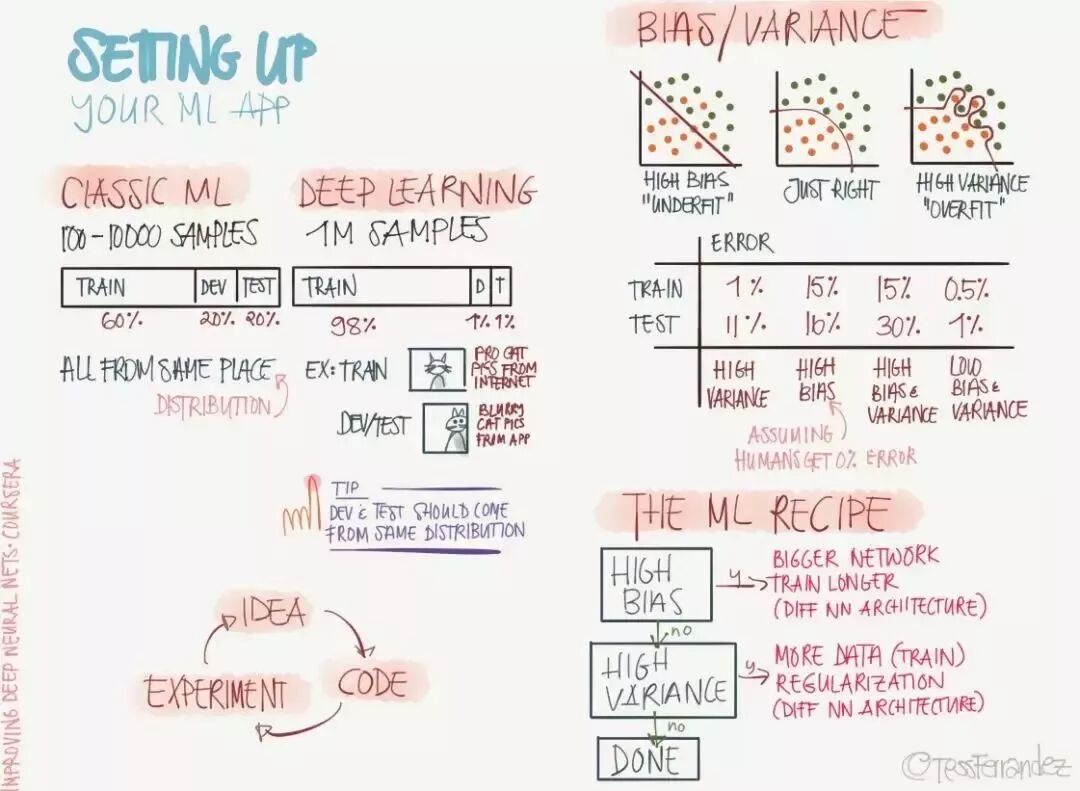 SETTING UP
YOUR ML APP
CLASSIC ML
100-10000 SAMPLES
TRAIN DEV TEST
60% 20% 20%
ALL FROM SAME PLACE
DISTRIBUTION
DEEP LEARNING
1M SAMPLES
TRAIN D T
98% 1% 1%
EX: TRAIN
PRO CAT
PICS FROM
INTERNET
DEV/TEST
BLURRY
CAT PICS
FROM APP
TIP
DEV & TEST SHOULD COME
FROM SAME DISTRIBUTION
IDEA
CODE
EXPERIMENT
BIAS/VARIANCE
HIGH BIAS
"UNDERFIT"
JUST RIGHT
HIGH VARIANCE
"OVERFIT"
ERROR
TRAIN 1% 15% 15% 0.5%
TEST 11% 16% 30% 1%
HIGH
VARIANCE
HIGH
BIAS
HIGH
BIAS &
VARIANCE
LOW
BIAS &
VARIANCE
ASSUMING
HUMANS GET 0% ERROR
THE ML RECIPE
HIGH
BIAS
y
BIGGER NETWORK
TRAIN LONGER
(DIFF NN ARCHITECTURE)
no
HIGH
VARIANCE
y
MORE DATA (TRAIN)
REGULARIZATION
(DIFF NN ARCHITECTURE)
no
DONE
IMPROVING DEEP NEURAL NETS · COURSERA
@TessFerrandez